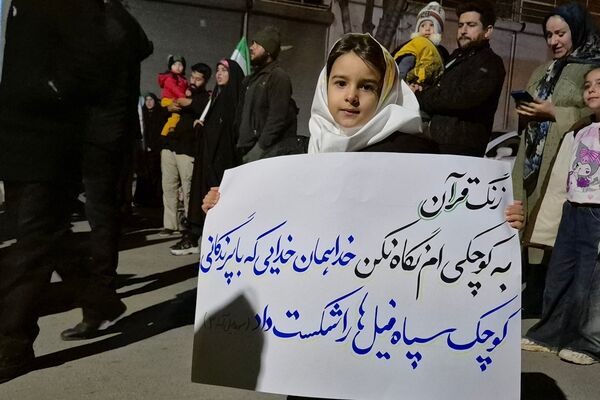 زنگ قرآن
به کوچکی ام نگاه نکن خدا همان خدایی که با پرندگانی
کوچک سپاه فیل‌ها را شکست داد